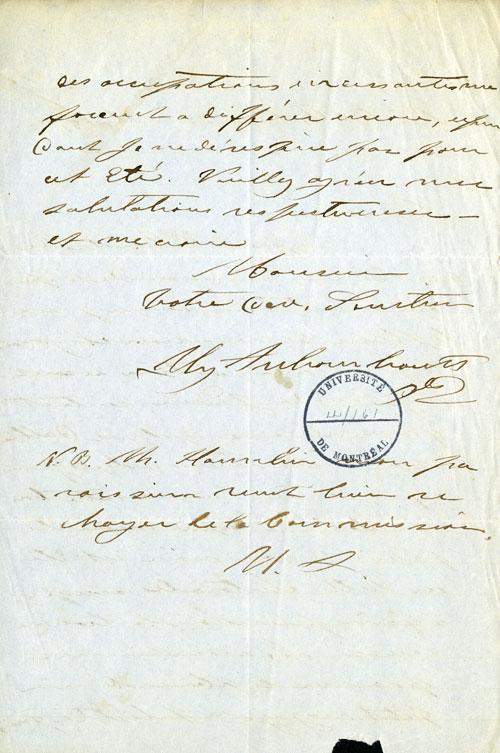 des occupations incessantes me
forcent a différer encore, cepen
dant Je ne désespère pas pour
cet Eté. Veuillez agréer mes
salutations respectueuses –
et me croire
Monsieur
Votre dev. Serviteur
Uly Archambault
UNIVERSITÉ
DE MONTRÉAL
N.B. M. Hamelin mon pa
roissien veut bien se
charger de la Commission.
U. A.